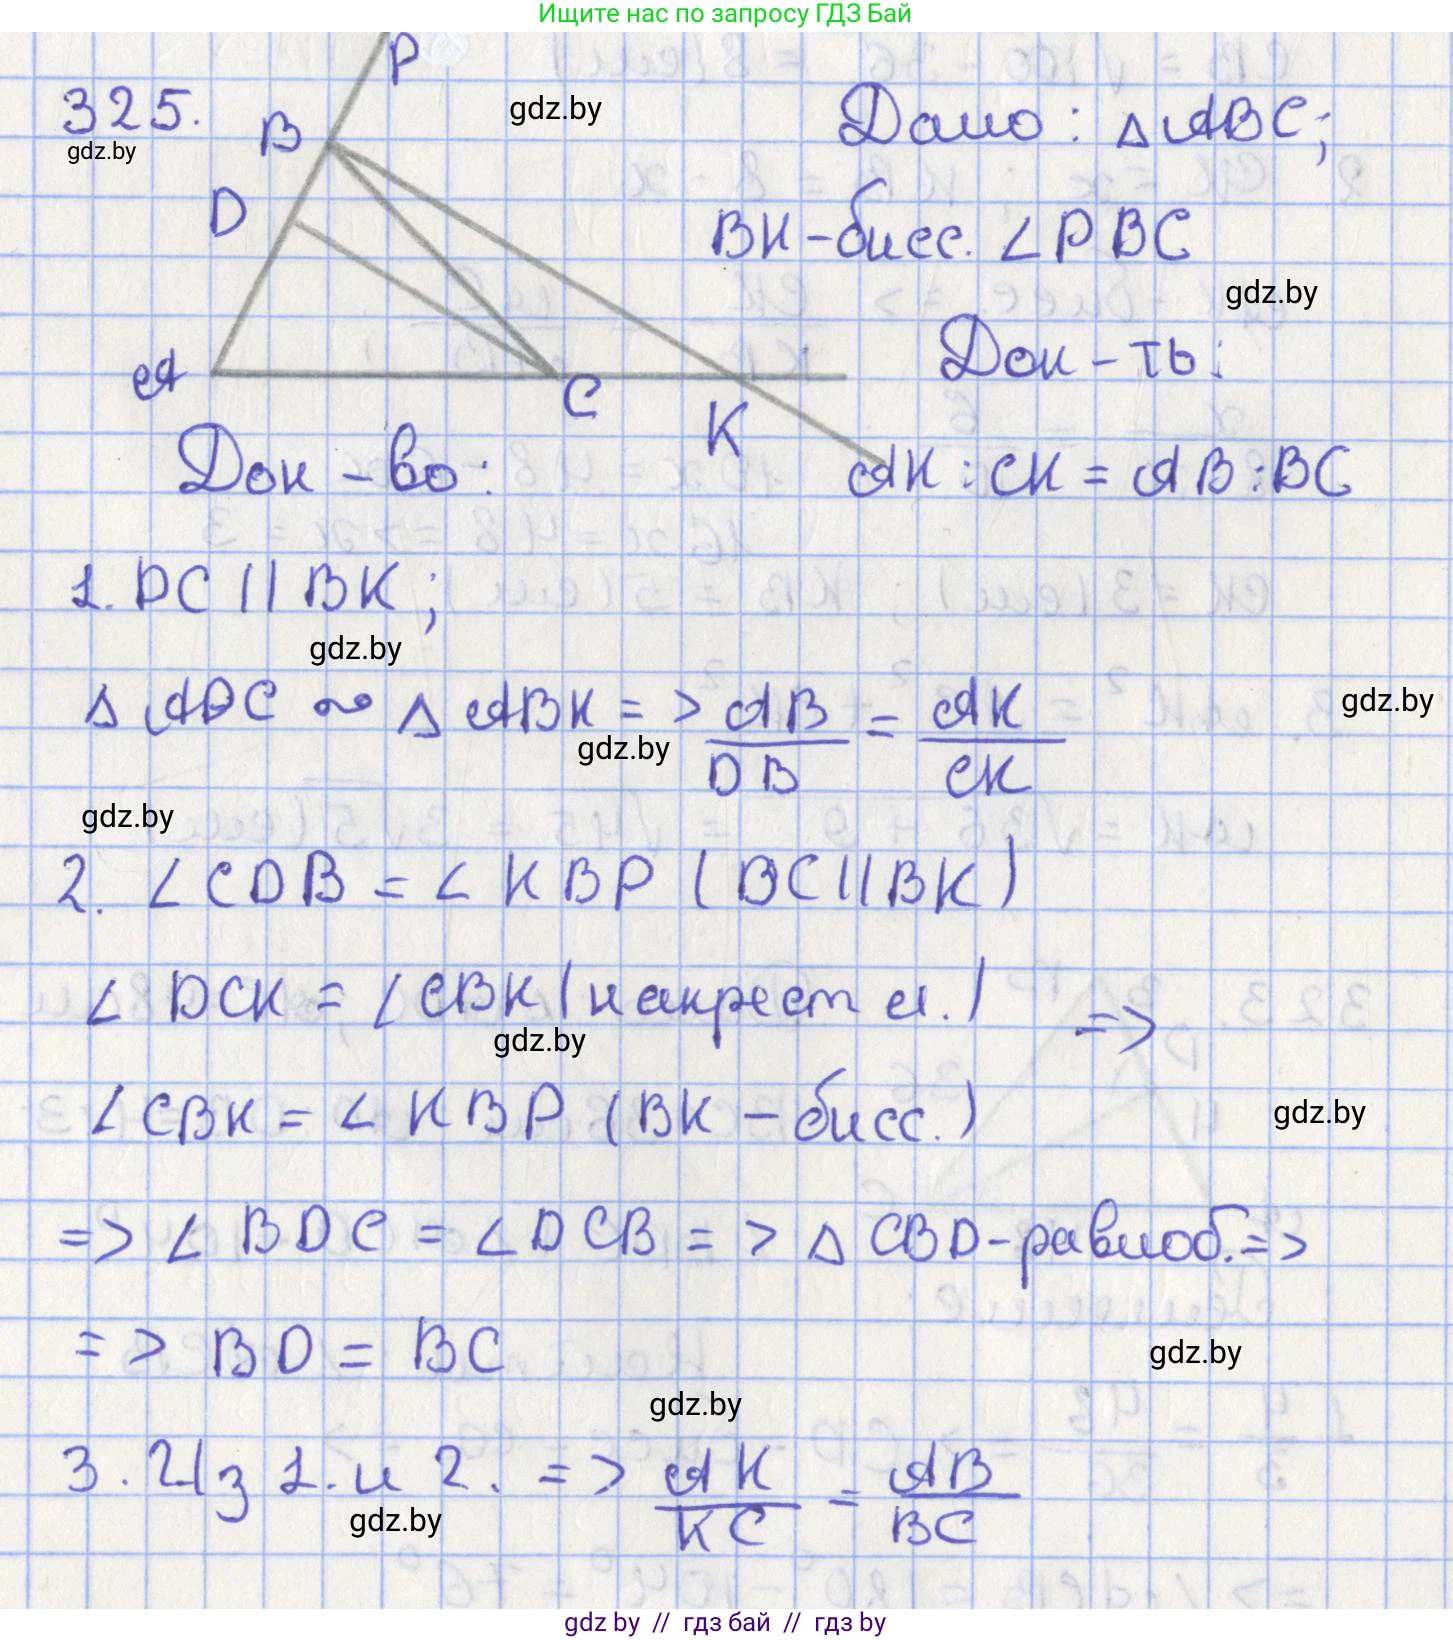 Ищите нас по запросу ГДЗ Бай
325.
gdz.by
P
B
D
A
C
K
gdz.by
Дано: △ABC;
BK-бисс. ∠PBC
gdz.by
Док-ть:
AK:CK = AB:BC
Док-во:
1. DC || BK;
gdz.by
△ ADC ~ △ ABK => AB/DB = AK/CK
gdz.by
gdz.by
gdz.by
2. ∠CDB = ∠KBP (DC||BK)
∠DCK = ∠CBK (накрест л.) =>
gdz.by
∠CBK = ∠KBP (BK - бисс.)
gdz.by
=> ∠BDC = ∠DCB => △ CBD-равноб. =>
=> BD = BC
gdz.by
gdz.by
3. Из 1. и 2. => AK/KC = AB/BC
gdz.by
gdz by // гдз бай // gdz by